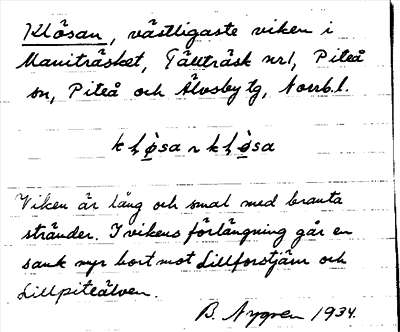 Klösan, västligaste viken i
Maniträsket, träsk nr 1, Piteå
sn, Piteå och Älvsby tg, Norrb.l.
Viken är lång och smal med branta
stränder. I vikens förlängning går en
sank myr bort mot Lillforstjärn och
Lillpiteälven.
B. Nygren 1934.